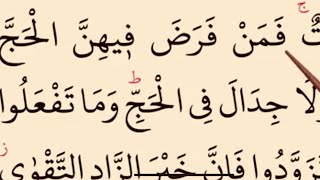 تٌ ۚ فَمَنْ فَرَضَ فِيهِنَّ الْحَجَّ
وَلَا جِدَالَ فِي الْحَجِّ ؕ وَمَا تَفْعَلُوا
تَزَوَّدُوا فَإِنَّ خَيْرَ الزَّادِ التَّقْوٰى ز